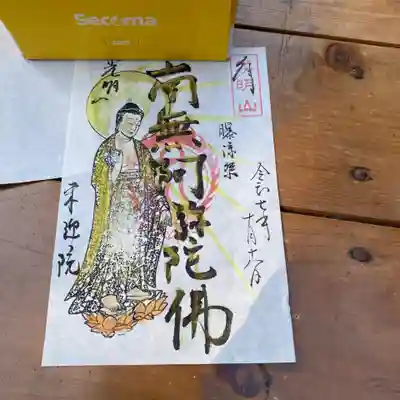 Secoma
有明山
曝涼祭
令和七年
十月十八日
南無阿弥陀佛
光明
来迎院